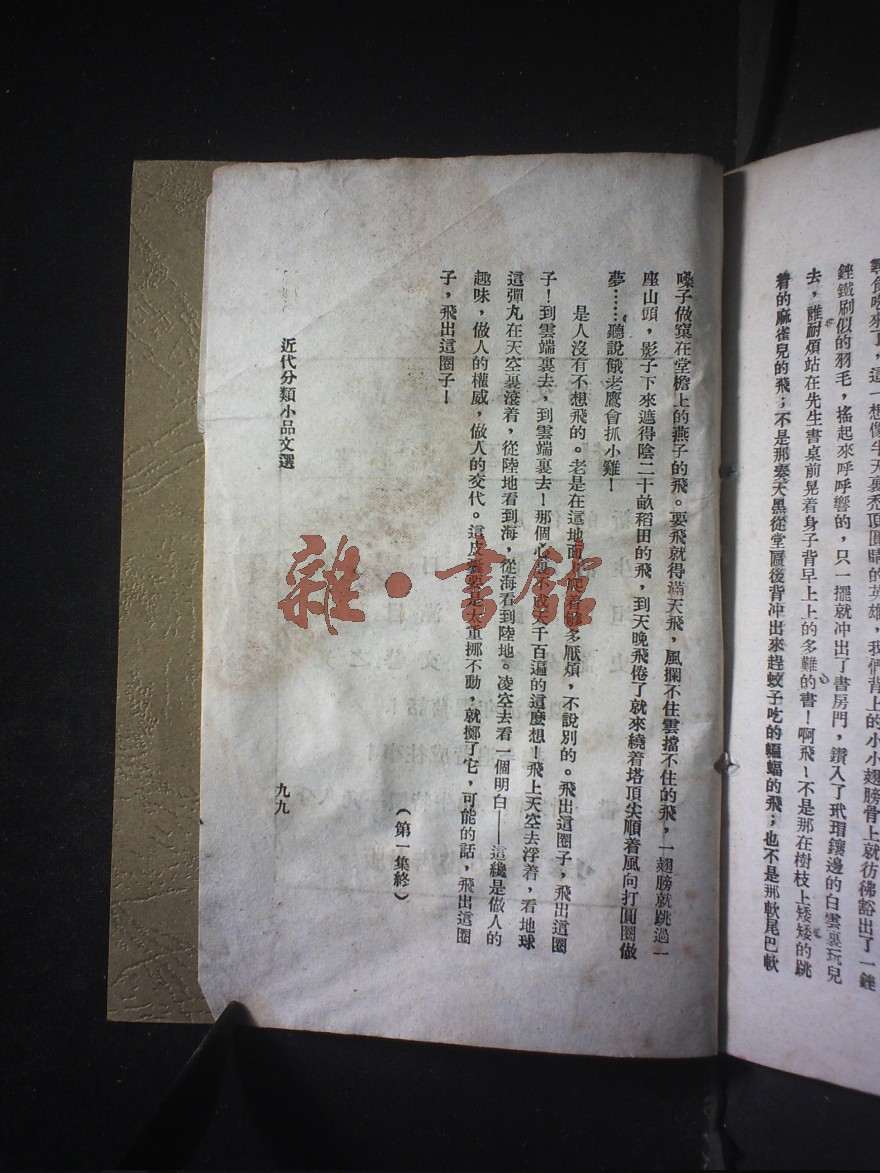 尋食吃來了，這一想像半天裏禿頂圓睛的英雄，我們背上的小小翅膀骨上就彷彿豁出了一銼
銼鐵刷似的羽毛，搖起來呼呼響的，只一擺就冲出了書房門，鑽入了玳瑁鑲邊的白雲裏玩兒
去，誰耐煩站在先生書桌前晃着身子背早上上的多難的書！啊飛！不是那在樹枝上矮矮的跳
着的麻雀兒的飛；不是那湊天黑從堂匾後背冲出來趕蚊子吃的蝙蝠的飛；也不是那軟尾巴軟
嗓子做窠在堂檐上的燕子的飛。要飛就得滿天飛，風攔不住雲擋不住的飛，一翅膀就跳過一
座山頭，影子下來遮得陰二十畝稻田的飛，到天晚飛倦了就來繞着塔頂尖順着風向打圓圈做
夢……聽說餓老鷹會抓小雞！
是人沒有不想飛的。老是在這地面上爬着够多厭煩，不說別的。飛出這圈子，飛出這圈
子！到雲端裏去，到雲端裏去！那個心裏不成天千百遍的這麼想！飛上天空去浮着，看地球
這彈丸在天空裏滾着，從陸地看到海，從海看到陸地。凌空去看一個明白——這纔是做人的
趣味，做人的權威，做人的交代。這皮囊要是太重挪不動，就擲了它，可能的話，飛出這圈
子，飛出這圈子！
（第一集終）
近代分類小品文選
九九
雜·書館